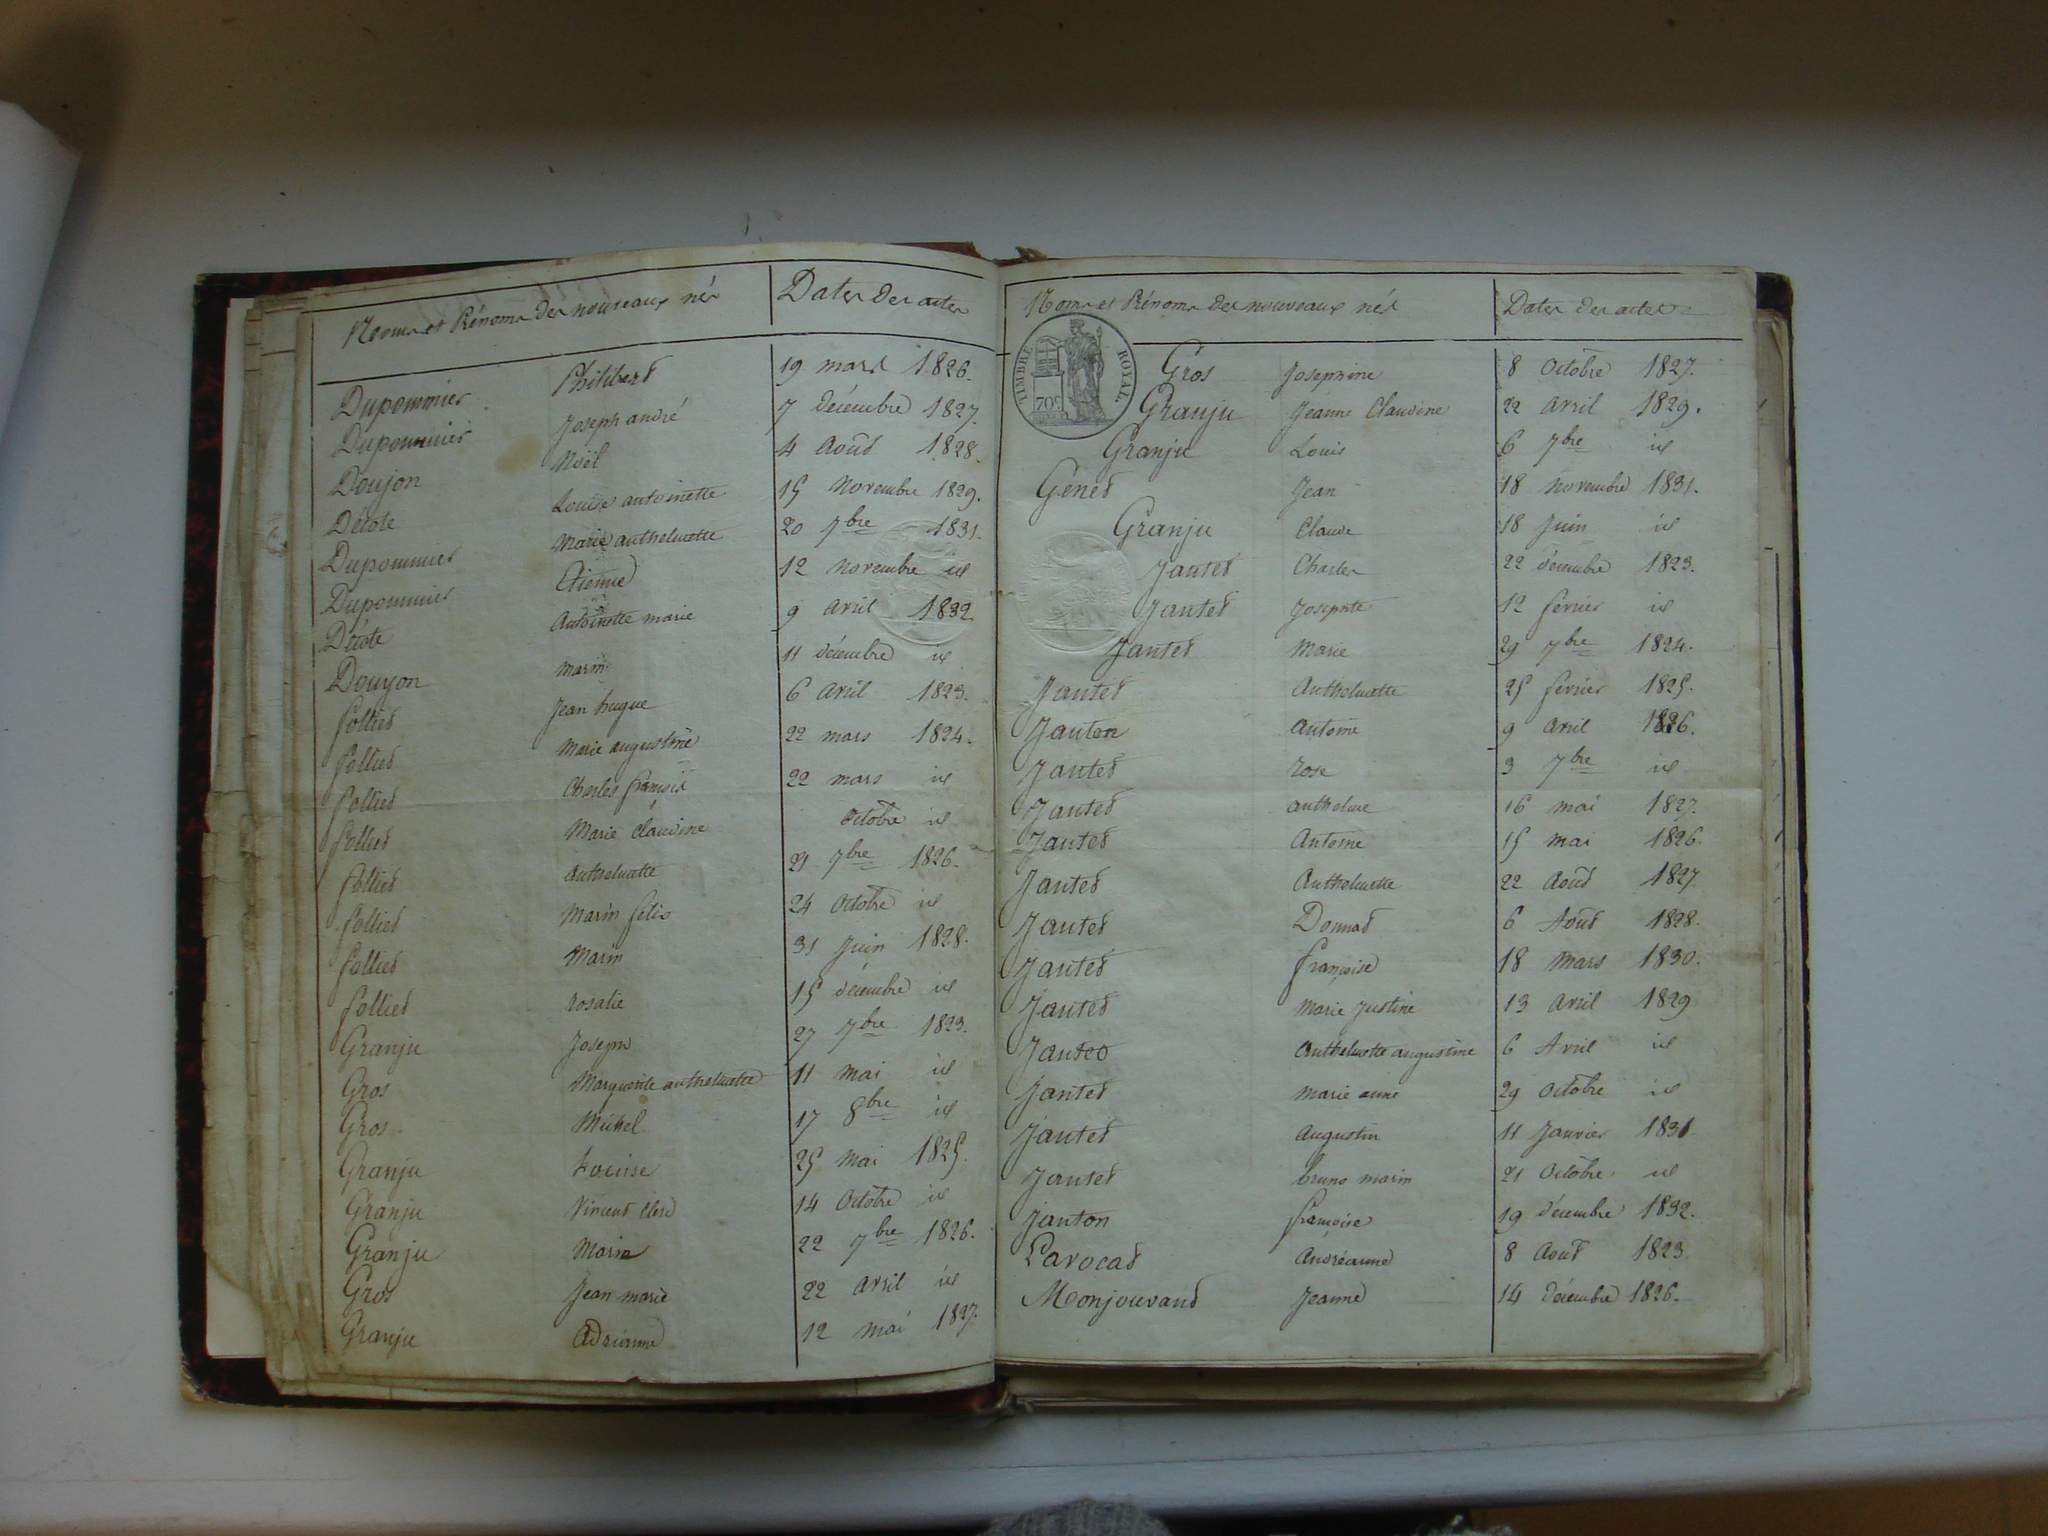 Noms et Prénoms des nouveaux nés Dates des actes
Dupommier Philibert 19 mars 1826.
Dupommier Joseph andré 7 décembre 1827.
Doujon Noël 4 Août 1828.
Décote Louise antoinette 15 Novembre 1829.
Dupommier Marie anthelmette 20 7bre 1831.
Dupommier Etienne 12 novembre id
Décote Antoinette marie 9 avril 1832
Doujon marin 11 décembre id
follied Jean hugue 6 avril 1823.
follied Marie augustine 22 mars 1824.
follied Charles françois 22 mars id
follied Marie claudine octobre id
follied anthelmette 21 7bre 1826.
follied Marin félix 24 octobre id
follied Marin 31 Juin 1828.
follied rosalie 15 décembre id
Granju Joseph 27 7bre 1823.
Gros Marguerite anthelmette 11 mai id
Gros Michel 17 8bre id
Granju Louise 25 mai 1825.
Granju Vincent 14 octobre id
Granju Marie 22 7bre 1826.
Gros Jean marie 22 avril id
Granju Adrianne 12 mai 1827.
Noms et Prénoms des nouveaux nés Dates des actes
TIMBRE ROYAL
70c
Gros Josephine 8 Octobre 1827.
Granju Jeanne Claudine 22 avril 1829.
Granju Louis 6 7bre id
Géned Jean 18 novembre 1831.
Granju Claude 18 Juin id
Janted Charles 22 décembre 1823.
Janted Josephte 12 février id
Janted Marie 29 7bre 1824.
Janted Anthelmette 25 février 1825.
Janton Antoine 9 avril 1826.
Janted rose 3 7bre id
Janted anthelme 16 mai 1827.
Janted Antoine 15 mai 1826.
Janted Anthelmette 22 Août 1827.
Janted Donnat 6 Août 1828.
Janted françoise 18 mars 1830.
Janted Marie Justine 13 avril 1829
Janted Anthelmette augustine 6 Avril id
Janted Marie anne 29 octobre id
Janted Augustin 11 Janvier 1831.
Janted bruno marin 21 octobre id
Janton françoise 19 décembre 1832.
Lavocad Andréanne 8 Août 1823.
Monjouvand Jeanne 14 décembre 1826.